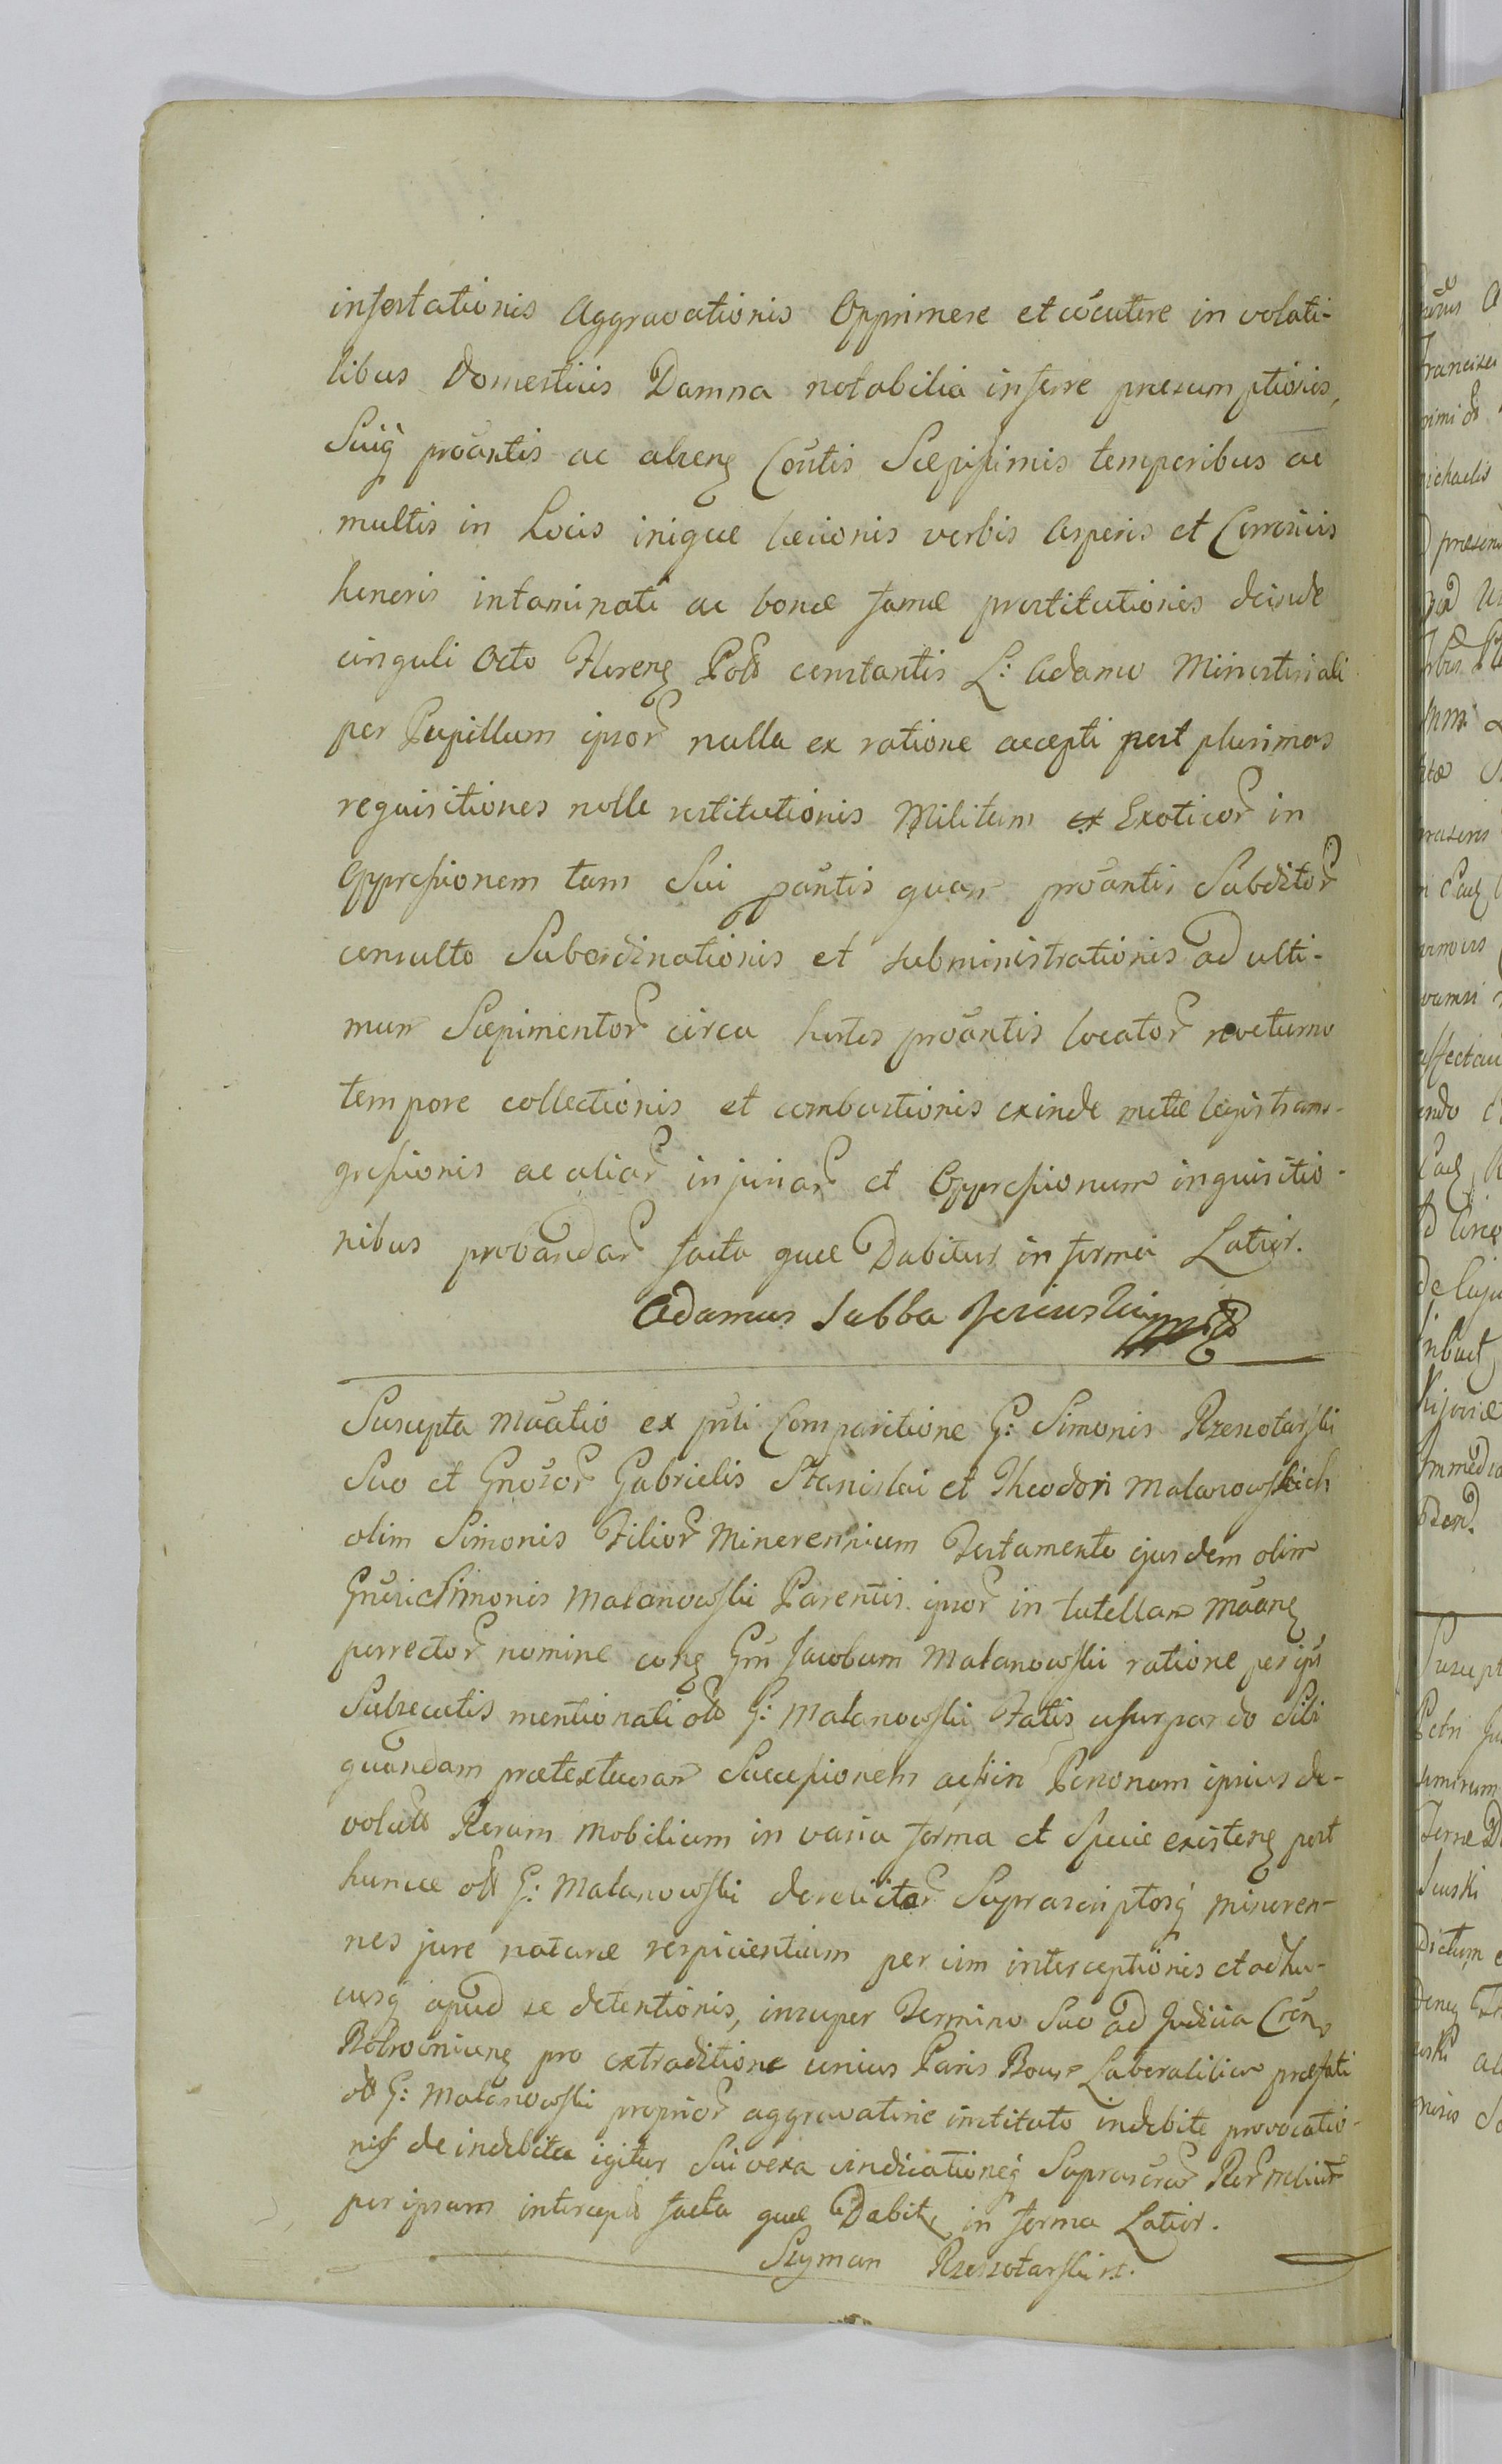 infestationis Aggravationis Opprimere et cócutere in volati-
libus Domesticis Damna notabilia inferre præsumptionis,
Suiq́ próantis ac absenę Cońtis Sæpissimis temporibus ac
multis in Locis iniquæ læsionis verbis Asperis et Corrosivis
honoris intaminati ac bonæ famæ prostitutionis deinde
cinguli Octo Florenę Poll constantis L: Adamo Ministeriali
per Pupillum ipsor nulla ex ratione accepti post plurimas
requisitiones nolle restitutionis Militum et Exoticor in
Oppressionem tam Sui pańtis quam próantis Subditor
consulto Subordinationis et subministrationis ad ulti-
mum Sæpimentor circa hortos próantis locator nocturno
tempore collectionis et combustionis exinde metæ legis trans-
gressionis ac aliar injuriar et Oppressionum inquisitio-
nibus probandar facta quæ Dabitur in forma Latior.
Adamus Sabba
Suscepta Mńatio ex pńti Comparitione G: Simonis Rzeszotarski
Suo et Gnosor Gabrielis Stanislai et Theodori Malanowskich
olim Simonis Filior Minorennium Testamento ejusdem olim
Gnósi Simonis Malanowski Parentis ipsor in tutellam Mńanę
porrector nomine conę Gnm Jacobum Malanowski ratione per ips
Subsecutis mentionati oll G: Malanowski Fatis usurpando Sibi
quandam prætextuosam Successionem ac in Personam ipsius de-
volut Rerum Mobilium in varia forma et Specie existenę post
hunce oll G: Malanowski derelictar Suprascriptosq́ minoren-
nes jure naturæ respicientium per eum interceptionis et adhu-
cusq́ apud se detentionis, insuper Termino Suo ad Judicia
pro extraditione unius Paris Boum Laboralium præfati
oll G: Malanowski proprior aggravatorie instituto indebite provocatio-
nis de indebita igitur Sui vexa vindicationeq́ Suprascrar Rer
per ipsum intercept facta quæ Dabit in forma Latior.
Szyman Rzeszotarski